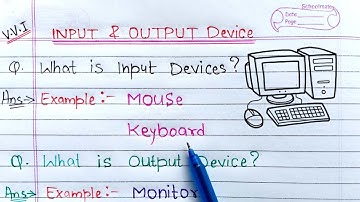 V.V.I INPUT & OUTPUT Device
Date
Page
Q. What is Input Devices?
Ans:-> Example:- Mouse
Keyboard
Q. What is Output Device?
Ans:-> Example:- Monitor